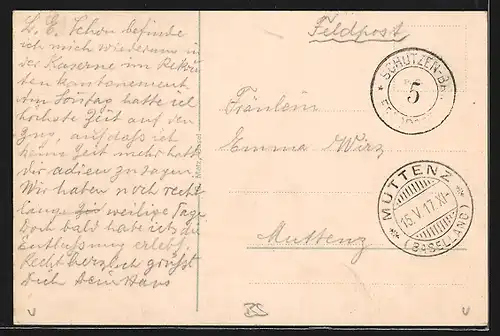 Feldpost
L. E. Schon befinde
ich mich wiederum in
der Kaserne im Rekru
tenkantonnement.
Am Sontag hatte ich
höchste Zeit auf den
Zug, aufdass ich
keine Zeit mehr hatte
dir adieu zu sagen.
Wir haben noch recht
lange weilige Tage.
Doch bald habe ich die
Entlassung erlebt.
Recht herzlich grüsst
Dich dein Hans
SCHÜTZEN-BAT.
5
Fräulein
Emma Wirz
Muttenz
MUTTENZ
15.V.17.XI-
(BASELLAND)
BS